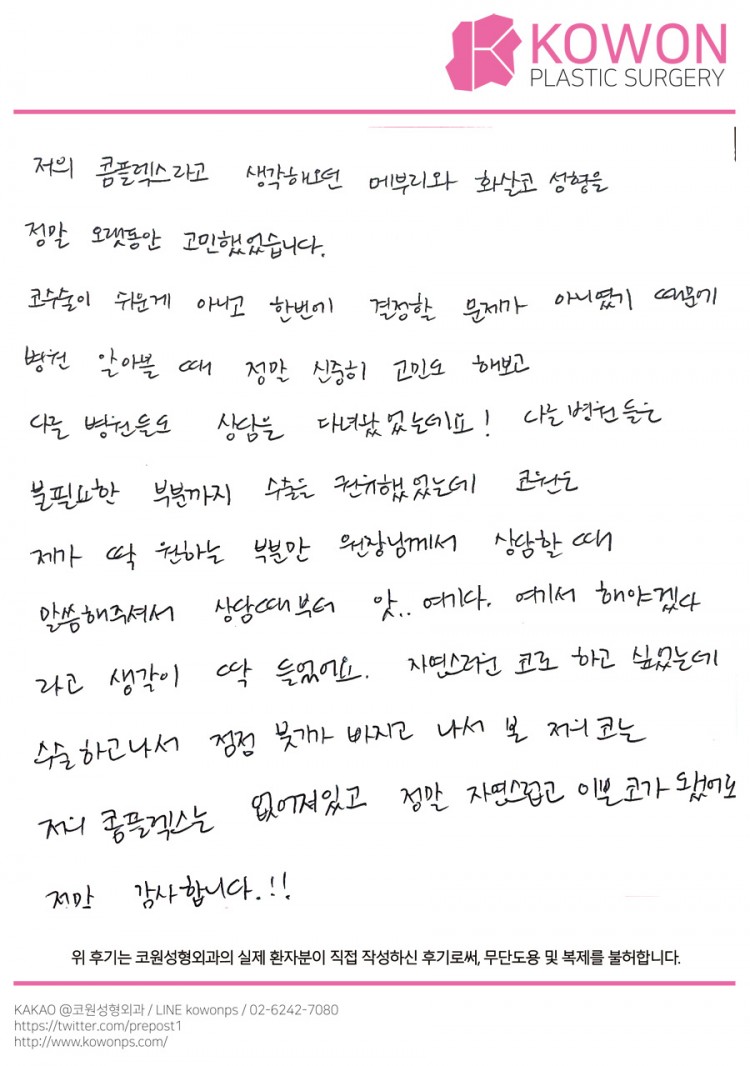 KOWON
PLASTIC SURGERY
저의 콤플렉스라고 생각해오던 메부리와 화살코 성형을
정말 오랫동안 고민했었습니다.
코수술이 쉬운게 아니고 한번에 결정할 문제가 아니였기 때문에
병원 알아볼 때 정말 신중히 고민도 해보고
다른 병원들도 상담을 다녀왔었는데요! 다른병원들은
불필요한 부분까지 수술을 권유했었는데 코원은
제가 딱 원하는 부분만 원장님께서 상담할때
말씀해주셔서 상담때부터 앗.. 여기다. 여기서 해야겠다
라고 생각이 딱 들었어요. 자연스러운 코로 하고 싶었는데
수술하고나서 점점 붓기가 빠지고 나서 본 저의코는
저의 콤플렉스는 없어져있고 정말 자연스럽고 이쁜코가 됐어요
정말 감사합니다.!!
위 후기는 코원성형외과의 실제 환자분이 직접 작성하신 후기로써, 무단도용 및 복제를 불허합니다.
KAKAO @코원성형외과 / LINE kowonps / 02-6242-7080
https://twitter.com/prepost1
http://www.kowonps.com/